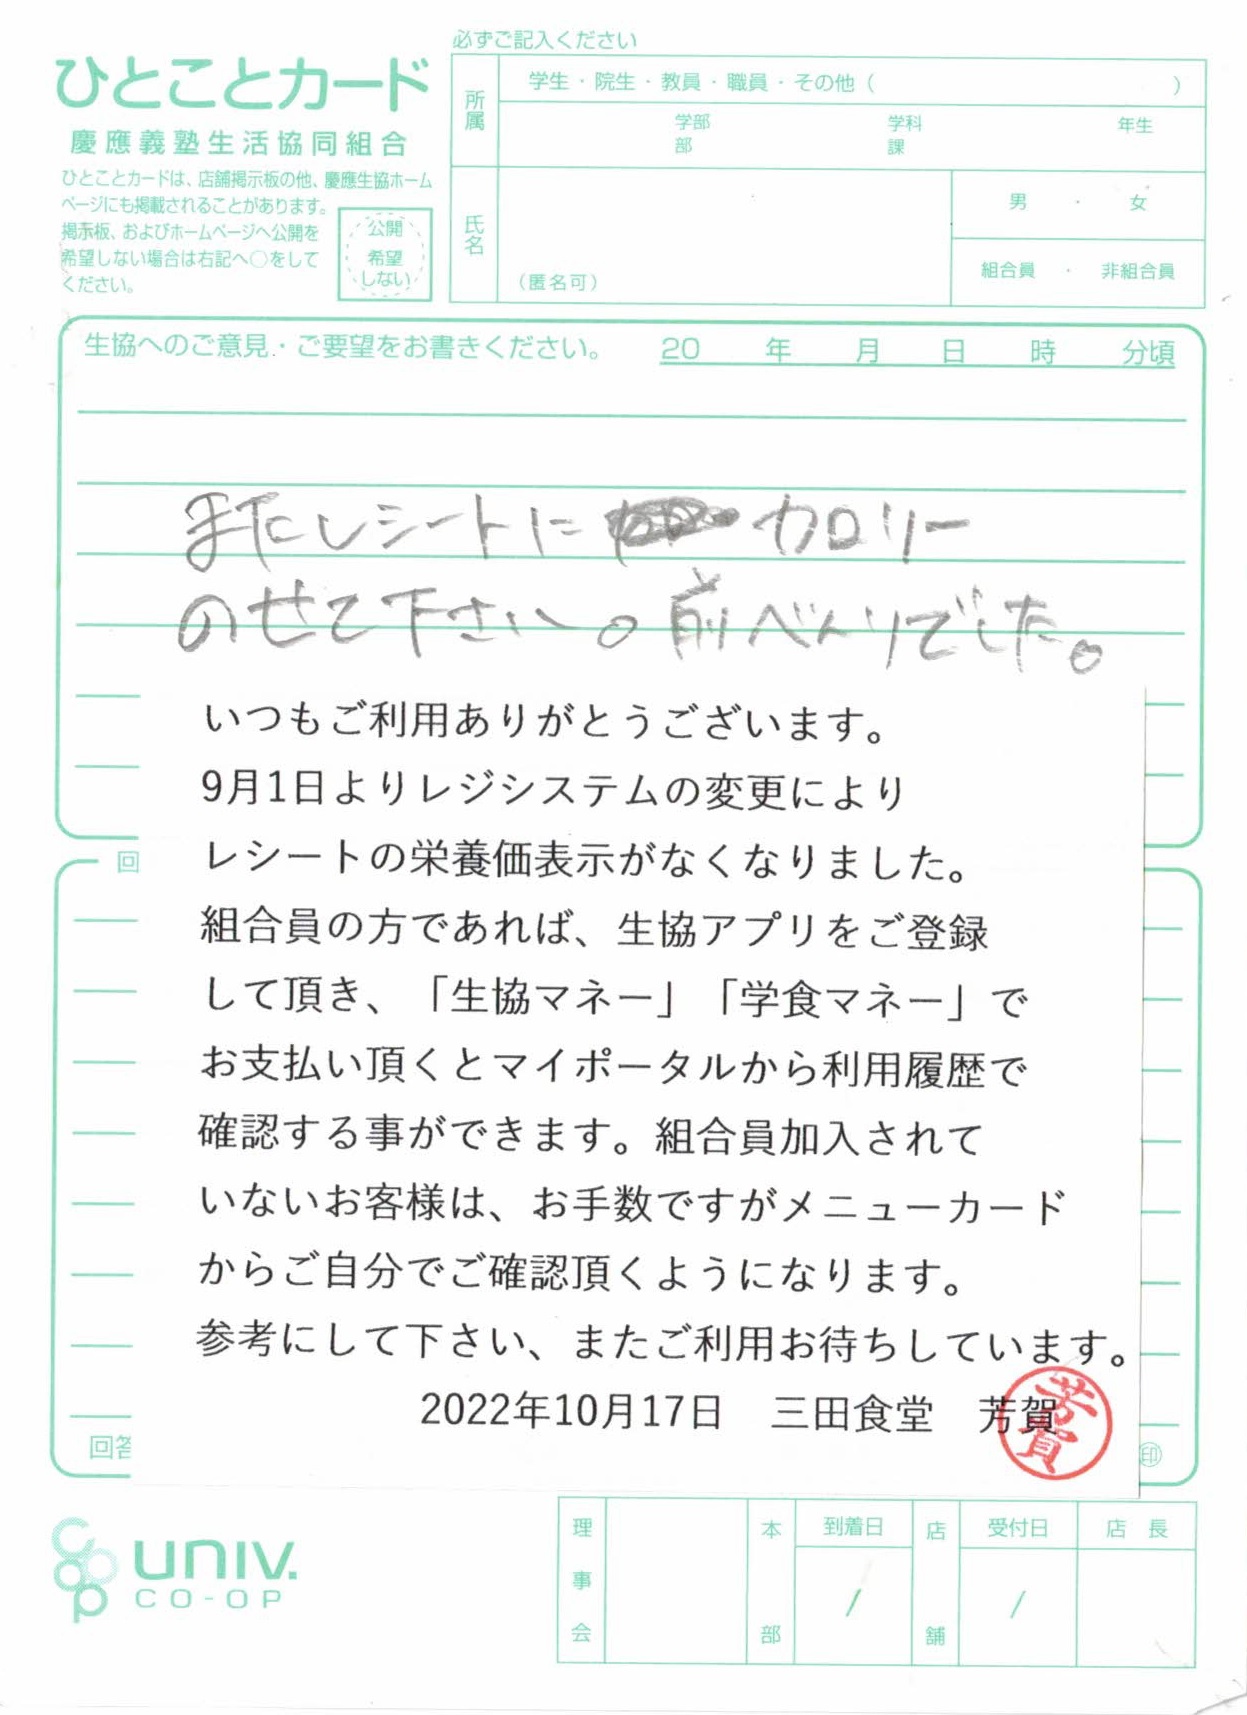 必ずご記入ください
ひとことカード
慶應義塾生活協同組合
ひとことカードは、店舗掲示板の他、慶應生協ホーム
ページにも掲載されることがあります。
掲示板、およびホームページへ公開を
希望しない場合は右記へ○をして
ください。
公開
希望
しない
所属
学生・院生・教員・職員・その他（　）
学部 学科 年生
部 課
氏名
（匿名可）
男・女
組合員・非組合員
生協へのご意見・ご要望をお書きください。 20 年 月 日 時 分頃
またレシートに カロリー
のせて下さい。前べんりでした。
いつもご利用ありがとうございます。
9月1日よりレジシステムの変更により
レシートの栄養価表示がなくなりました。
組合員の方であれば、生協アプリをご登録
して頂き、「生協マネー」「学食マネー」で
お支払い頂くとマイポータルから利用履歴で
確認する事ができます。組合員加入されて
いないお客様は、お手数ですがメニューカード
からご自分でご確認頂くようになります。
参考にして下さい、またご利用お待ちしています。
2022年10月17日　三田食堂　芳賀
芳賀
回
回答
印
coop
univ.
CO-OP
理事会
本部
到着日
/
店舗
受付日
/
店長